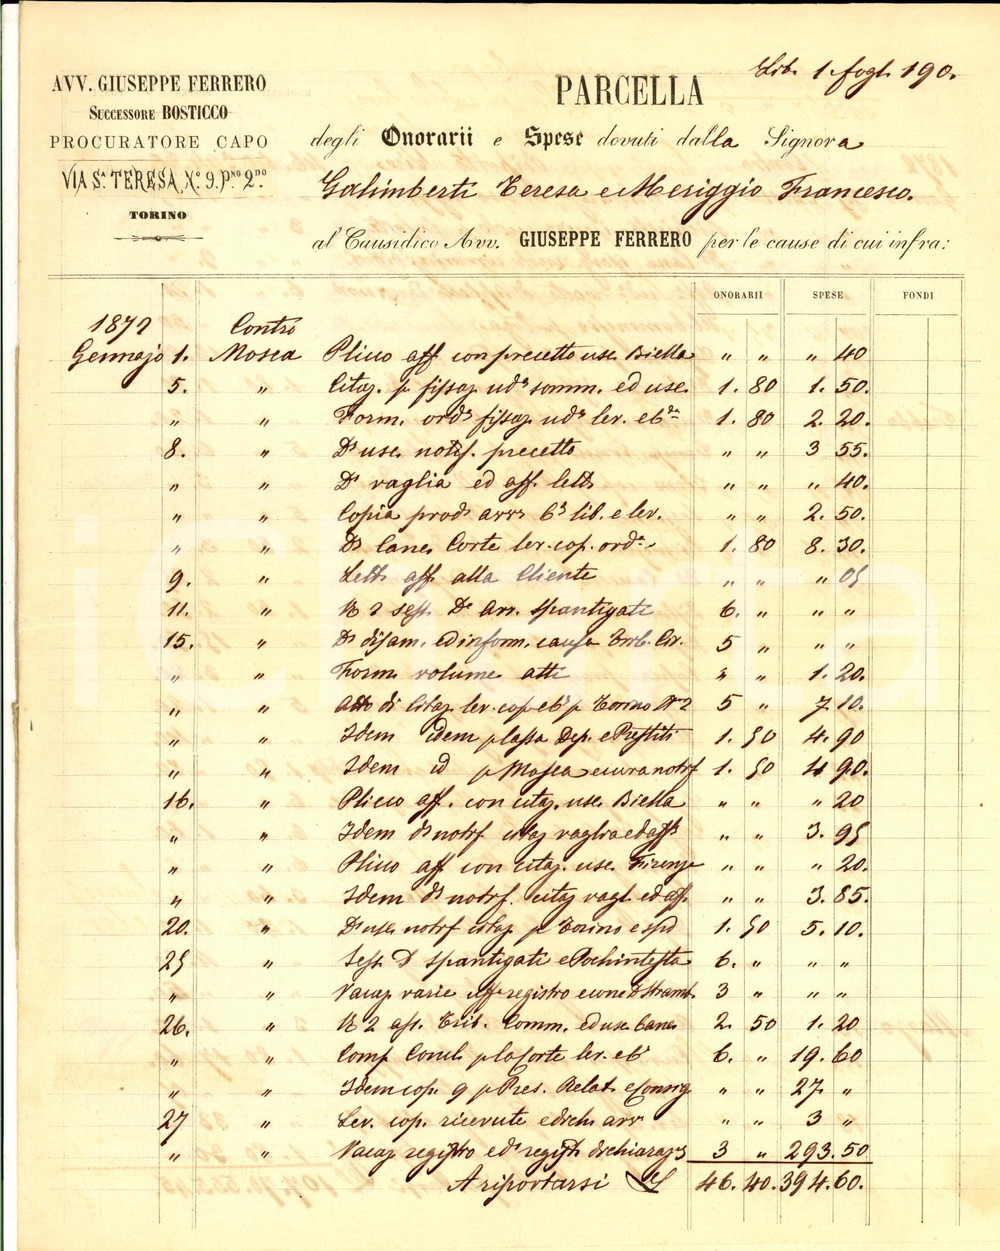 Lib. 1 fogl. 190.
AVV. GIUSEPPE FERRERO
SUCCESSORE BOSTICCO
PROCURATORE CAPO
VIA Sª TERESA, Nº 9. Pno 2do
TORINO
PARCELLA
degli Onorarii e Spese dovuti dalla Signora
Galimberti Teresa e Meriggio Francesco.
al Causidico Avv. GIUSEPPE FERRERO per le cause di cui infra:
ONORARII SPESE FONDI
1872 Contro
Gennajo 1. Mosca Plico aff. con precetto use. Biella " " " 40
5. " Citaz. p fissaz. ud. somm. ed use. 1. 80 1. 50.
" " Form. ord. fissaz. ud. lev. e 1. 80 2. 20.
8. " Ds use. notif. precetto " " 3 55.
" " Ds vaglia ed aff. lett. " " " 40.
" " Copia prod. lib. e lev. " " 2. 50.
" " Ds Canc. Corte lev. cop. ord. 1. 80 8. 30.
9. " Lett. aff. alla Cliente " " " 05
11. " N 2 sess. Ds Avv. Spantigati 6. " " "
15. " Ds disam. ed inform. causa 5 " " "
" " Form. volume atti " " 1. 20.
" " Atto di Citaz. lev. cop. p Torino Nº 2 5 " 7. 10.
" " Idem idem p Cassa Dep. e Prestiti 1. 50 4. 90
" " Idem id p Mosca e cura notif 1. 50 4 90.
16. " Plico aff. con citaz. use. Biella " " " 20
" " Idem ds notif. citaz vaglia ed aff " " 3. 95
" " Plico aff con citaz. use. Firenze " " " 20.
" " Idem ds notif. citaz vagl. ed aff. " " 3. 85.
20. " Ds use notif citaz p Torino e 1. 50 5. 10.
25 " Sess. Ds Spantigati e Pochintesta 6. " " "
" " Vacaz varie uff registro e 3 " " "
26. " N 2 Trib. Comm. ed use Canc 2. 50 1. 20
" " Comp p la Corte lev. e 6. " 19. 60
" " Idem cop. 9 p Pres. Relat. e Consig " " 27 "
27 " Lev. cop. ricevute e " " 3 "
" " Vacaz registro ed 3 " 293. 50
A riportarsi L 46. 40. 394. 60.